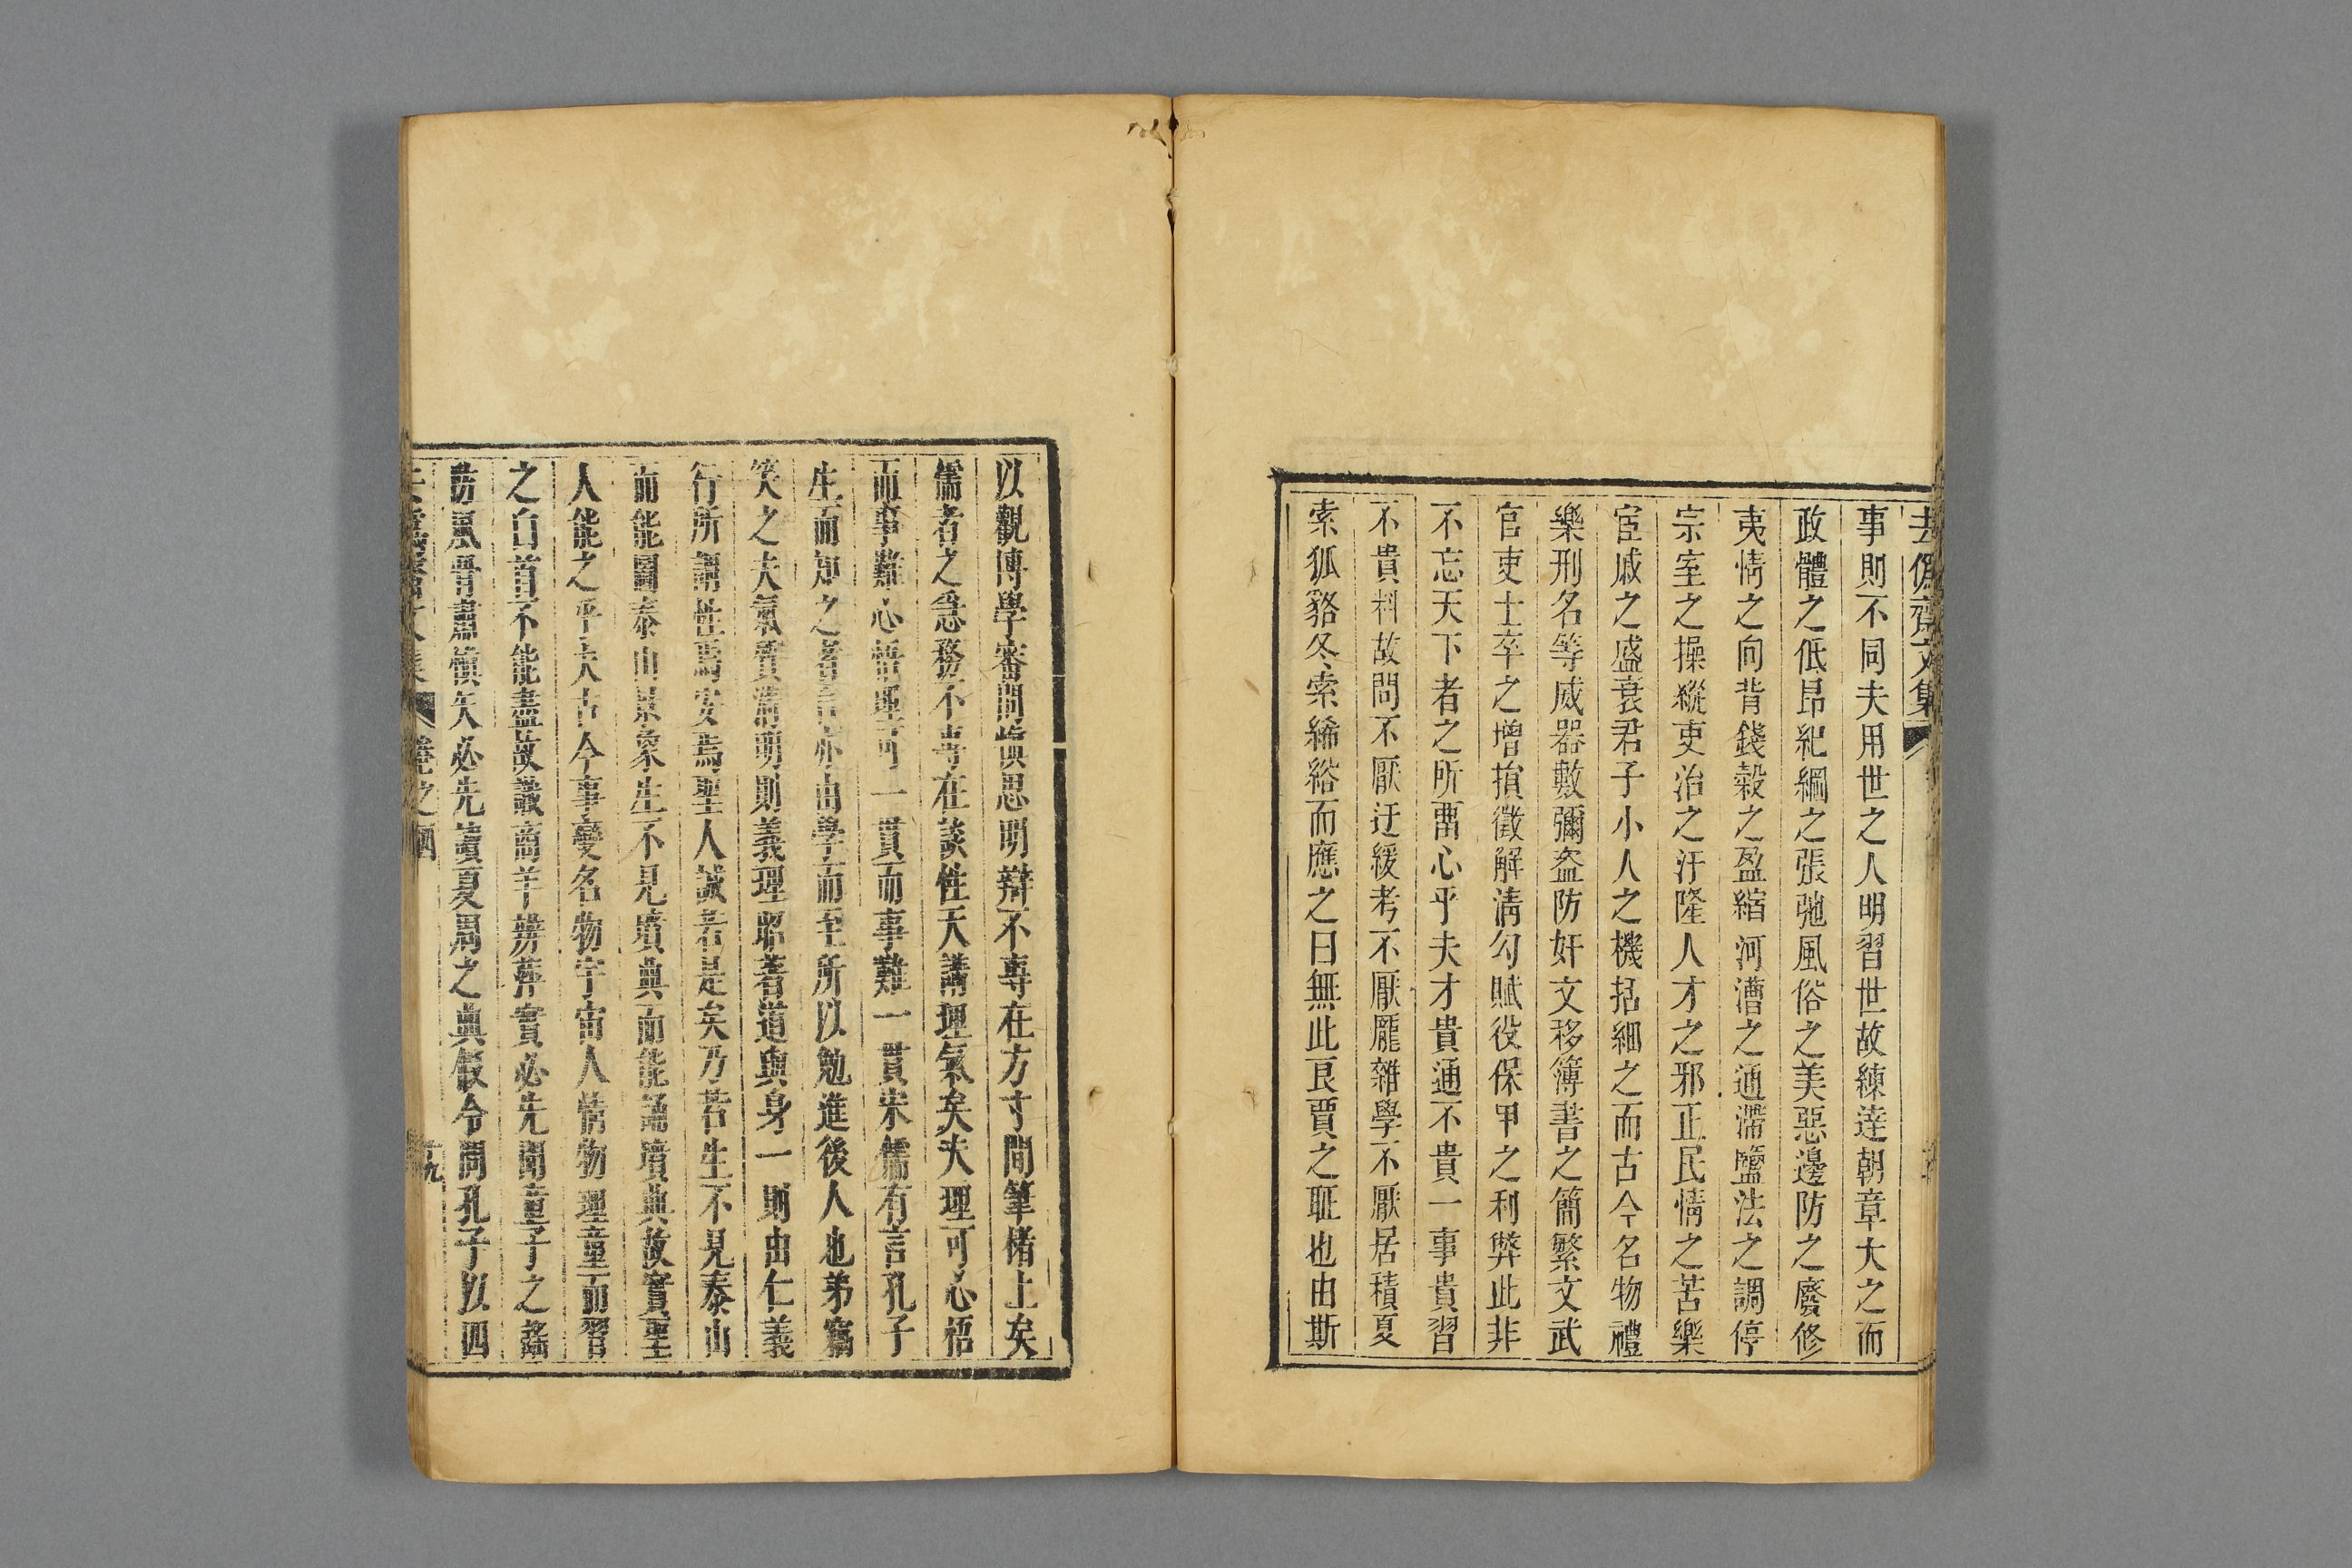 去偽齋文集
事則不同夫用世之人明習世故練達朝章大之而
政體之低昂紀綱之張弛風俗之美惡邊防之廢修
夷情之向背錢穀之盈縮河漕之通滯鹽法之調停
宗室之操縱吏治之汙隆人才之邪正民情之苦樂
宦戚之盛衰君子小人之機括細之而古今名物禮
樂刑名等威器數彌盜防奸文移簿書之簡繁文武
官吏士卒之增損徵解淸勾賦役保甲之利弊此非
不忘天下者之所畱心乎夫才貴通不貴一事貴習
不貴料故問不厭迂緩考不厭龐雜學不厭居積夏
索狐貉冬索絺綌而應之曰無此良賈之恥也由斯
以觀博學審問愼思明辯不專在方寸間筆楮上矣
儒者之急務不專在談性天講理氣矣夫理可心悟
而事難心悟理可一貫而事難一貫宋儒有言孔子
生而知之者言亦由學而至所以勉進後人也弟竊
笑之夫氣質淸明則義理昭著道與身一則由仁義
行所謂性焉安焉聖人誠若是矣乃若生不見泰山
而能圖泰山景象生不見墳典而能誦墳典故實聖
人能之乎夫古今事變名物宇宙人情物理童而習
之白首不能盡故識商羊辨萍實必先聞童子之謠
防風骨肅愼矢必先讀夏周之典假令問孔子以四
去僞齋文集 卷之四 百九